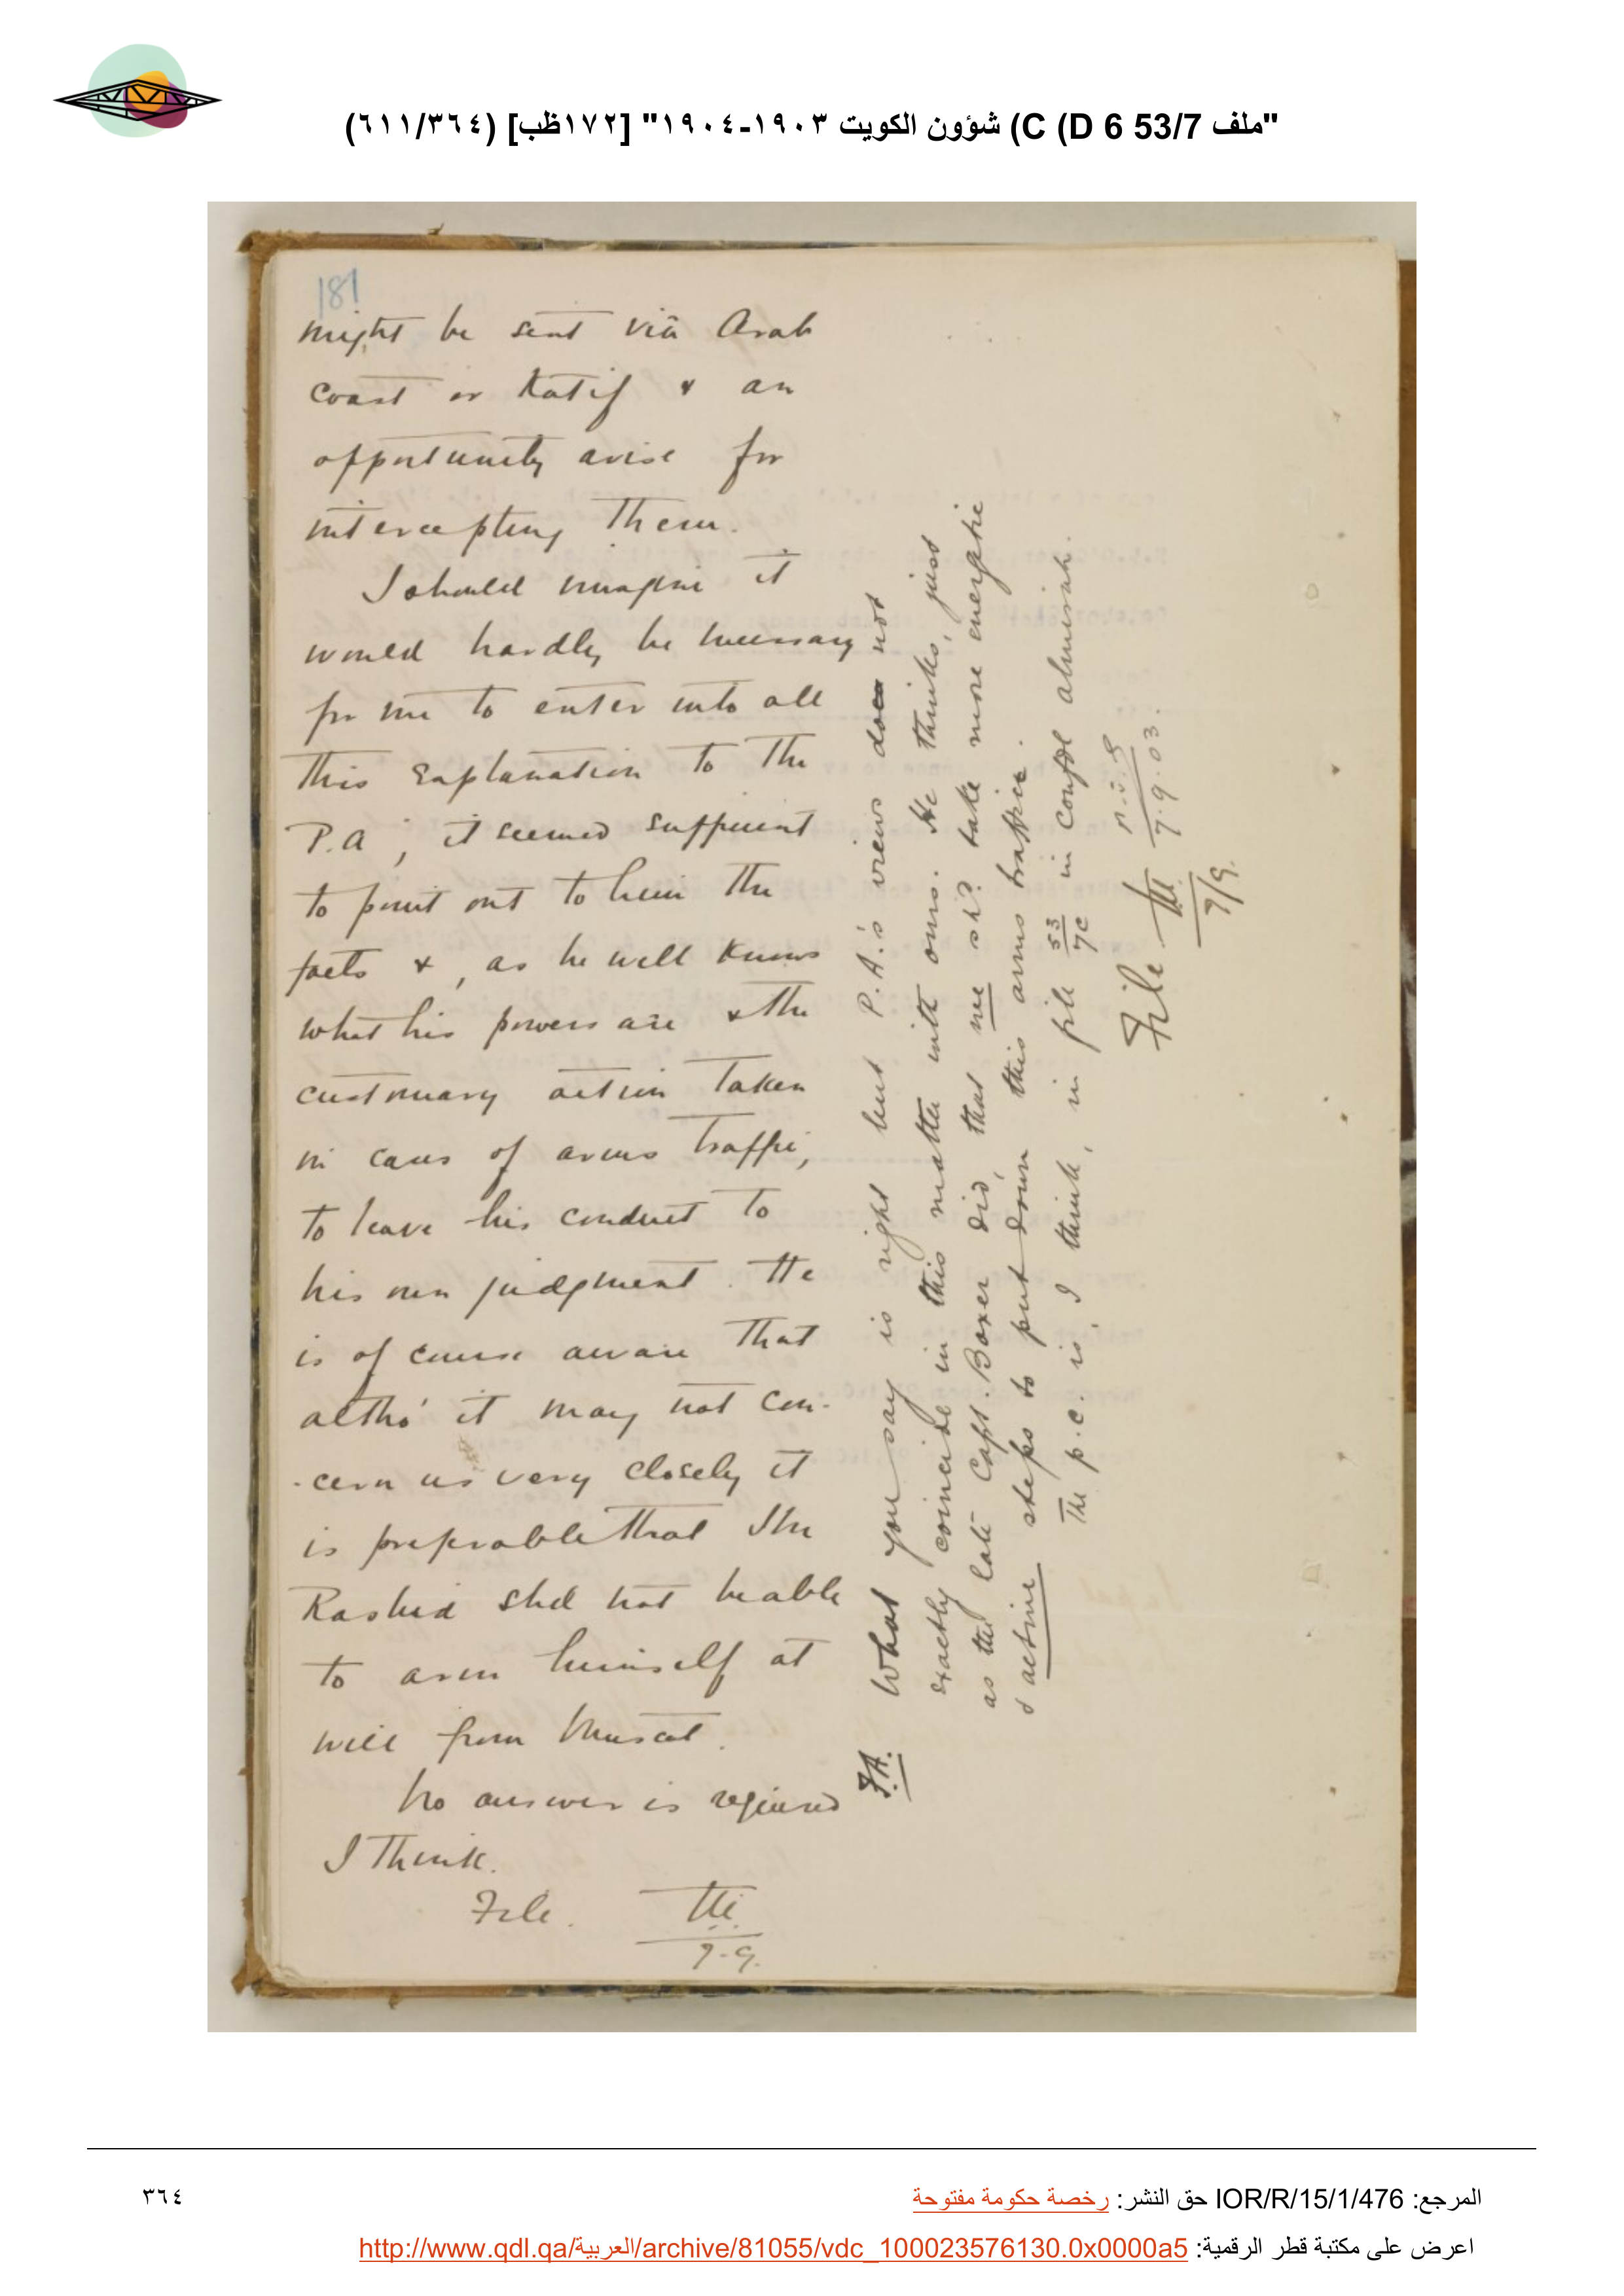 "ملف 53/7 C (D 6) شؤون الكويت ١٩٠٣-١٩٠٤" [١٧٢ظب] (٦١١/٣٦٤)
181
might be sent viâ Arab
coast or Katif & an
opportunity arise for
intercepting them.
I should imagine it
would hardly be necessary
for me to enter into all
this explanation to the
P.A; it seemed sufficient
to point out to him the
facts &, as he well knows
what his powers are & the
customary action taken
in cases of arms traffic,
to leave his conduct to
his own judgment. He
is of course aware that
altho' it may not con-
-cern us very closely it
is preferable that Ibn
Rashid shd not be able
to arm himself at
will from Muscat.
No answer is required
I think.
File.
7.9.
F.A.
What you say is right but P.A.'s views does not
exactly coincide in this matter with ours. He thinks, just
as the late Capt. Boxer did, that we shd take more energetic
& active steps to put down this arms traffic.
The p.c. is, I think, in file 53/7C in confdl almirah.
7.9.03.
File
7/9.
المرجع: IOR/R/15/1/476 حق النشر: رخصة حكومة مفتوحة
٣٦٤
اعرض على مكتبة قطر الرقمية: http://www.qdl.qa/العربية/archive/81055/vdc_100023576130.0x0000a5